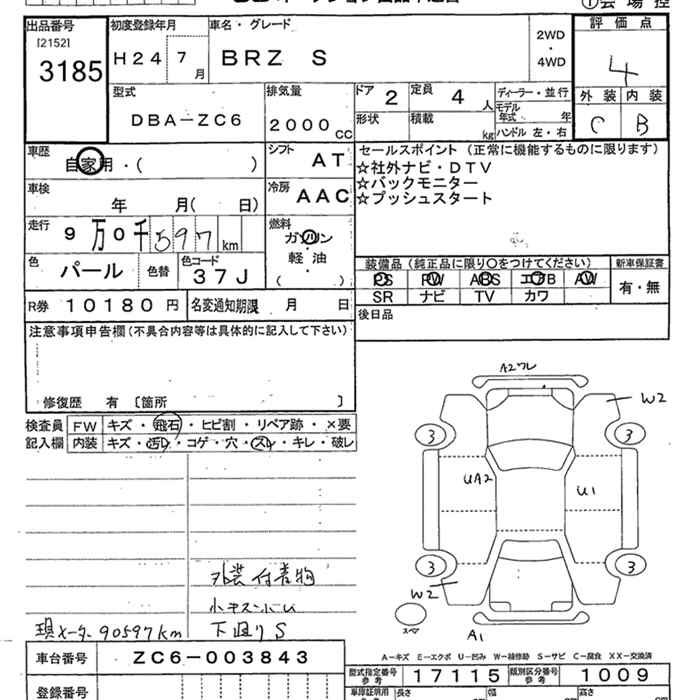 出品番号 初度登録年月 車名・グレード 評価点
[2152] H24 7月 BRZ S 2WD・4WD 4
3185
型式 排気量 ドア 2 定員 4人 ディーラー・並行 外装 内装
DBA-ZC6 2000cc 形状 積載 kg モデル年式 年 C B
ハンドル 左・右
車歴 自家用・( ) シフト AT セールスポイント(正常に機能するものに限ります)
☆社外ナビ・DTV
車検 年 月( 日) 冷房 AAC ☆バックモニター
☆プッシュスタート
走行 9万0千597km 燃料 ガソリン・軽油( )
色 パール 色替 色コード 37J
装備品(純正品に限り○をつけてください) 新車保証書
PS PW ABS エアB AW 有・無
SR ナビ TV カワ
R券 10180円 名変通知期限 月 日 後日品
注意事項申告欄(不具合内容等は具体的に記入して下さい)
修復歴 有 〔箇所 〕
検査員記入欄 FW キズ・飛石・ヒビ割・リペア跡・×要
内装 キズ・汚レ・コゲ・穴・スレ・キレ・破レ
A2ワレ
W2
3 3
UA2 U1
3 3
W2
スペア
A1
外装付着物
小キズ
現メーター90597km 下廻りS
A-キズ E-エクボ U-凹み W-補修跡 S-サビ C-腐食 XX-交換済
車台番号 ZC6-003843
型式指定番号参考 17115 類別区分番号参考 1009
登録番号
長さ 幅 高さ